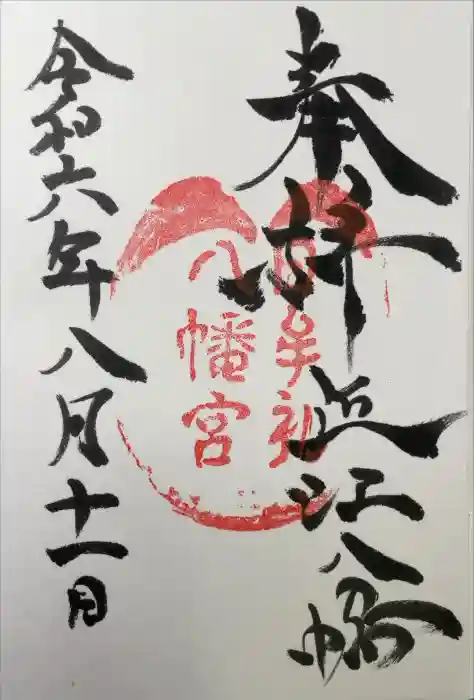 奉拝
近江八幡
日牟礼
八幡宮
令和六年八月十一日